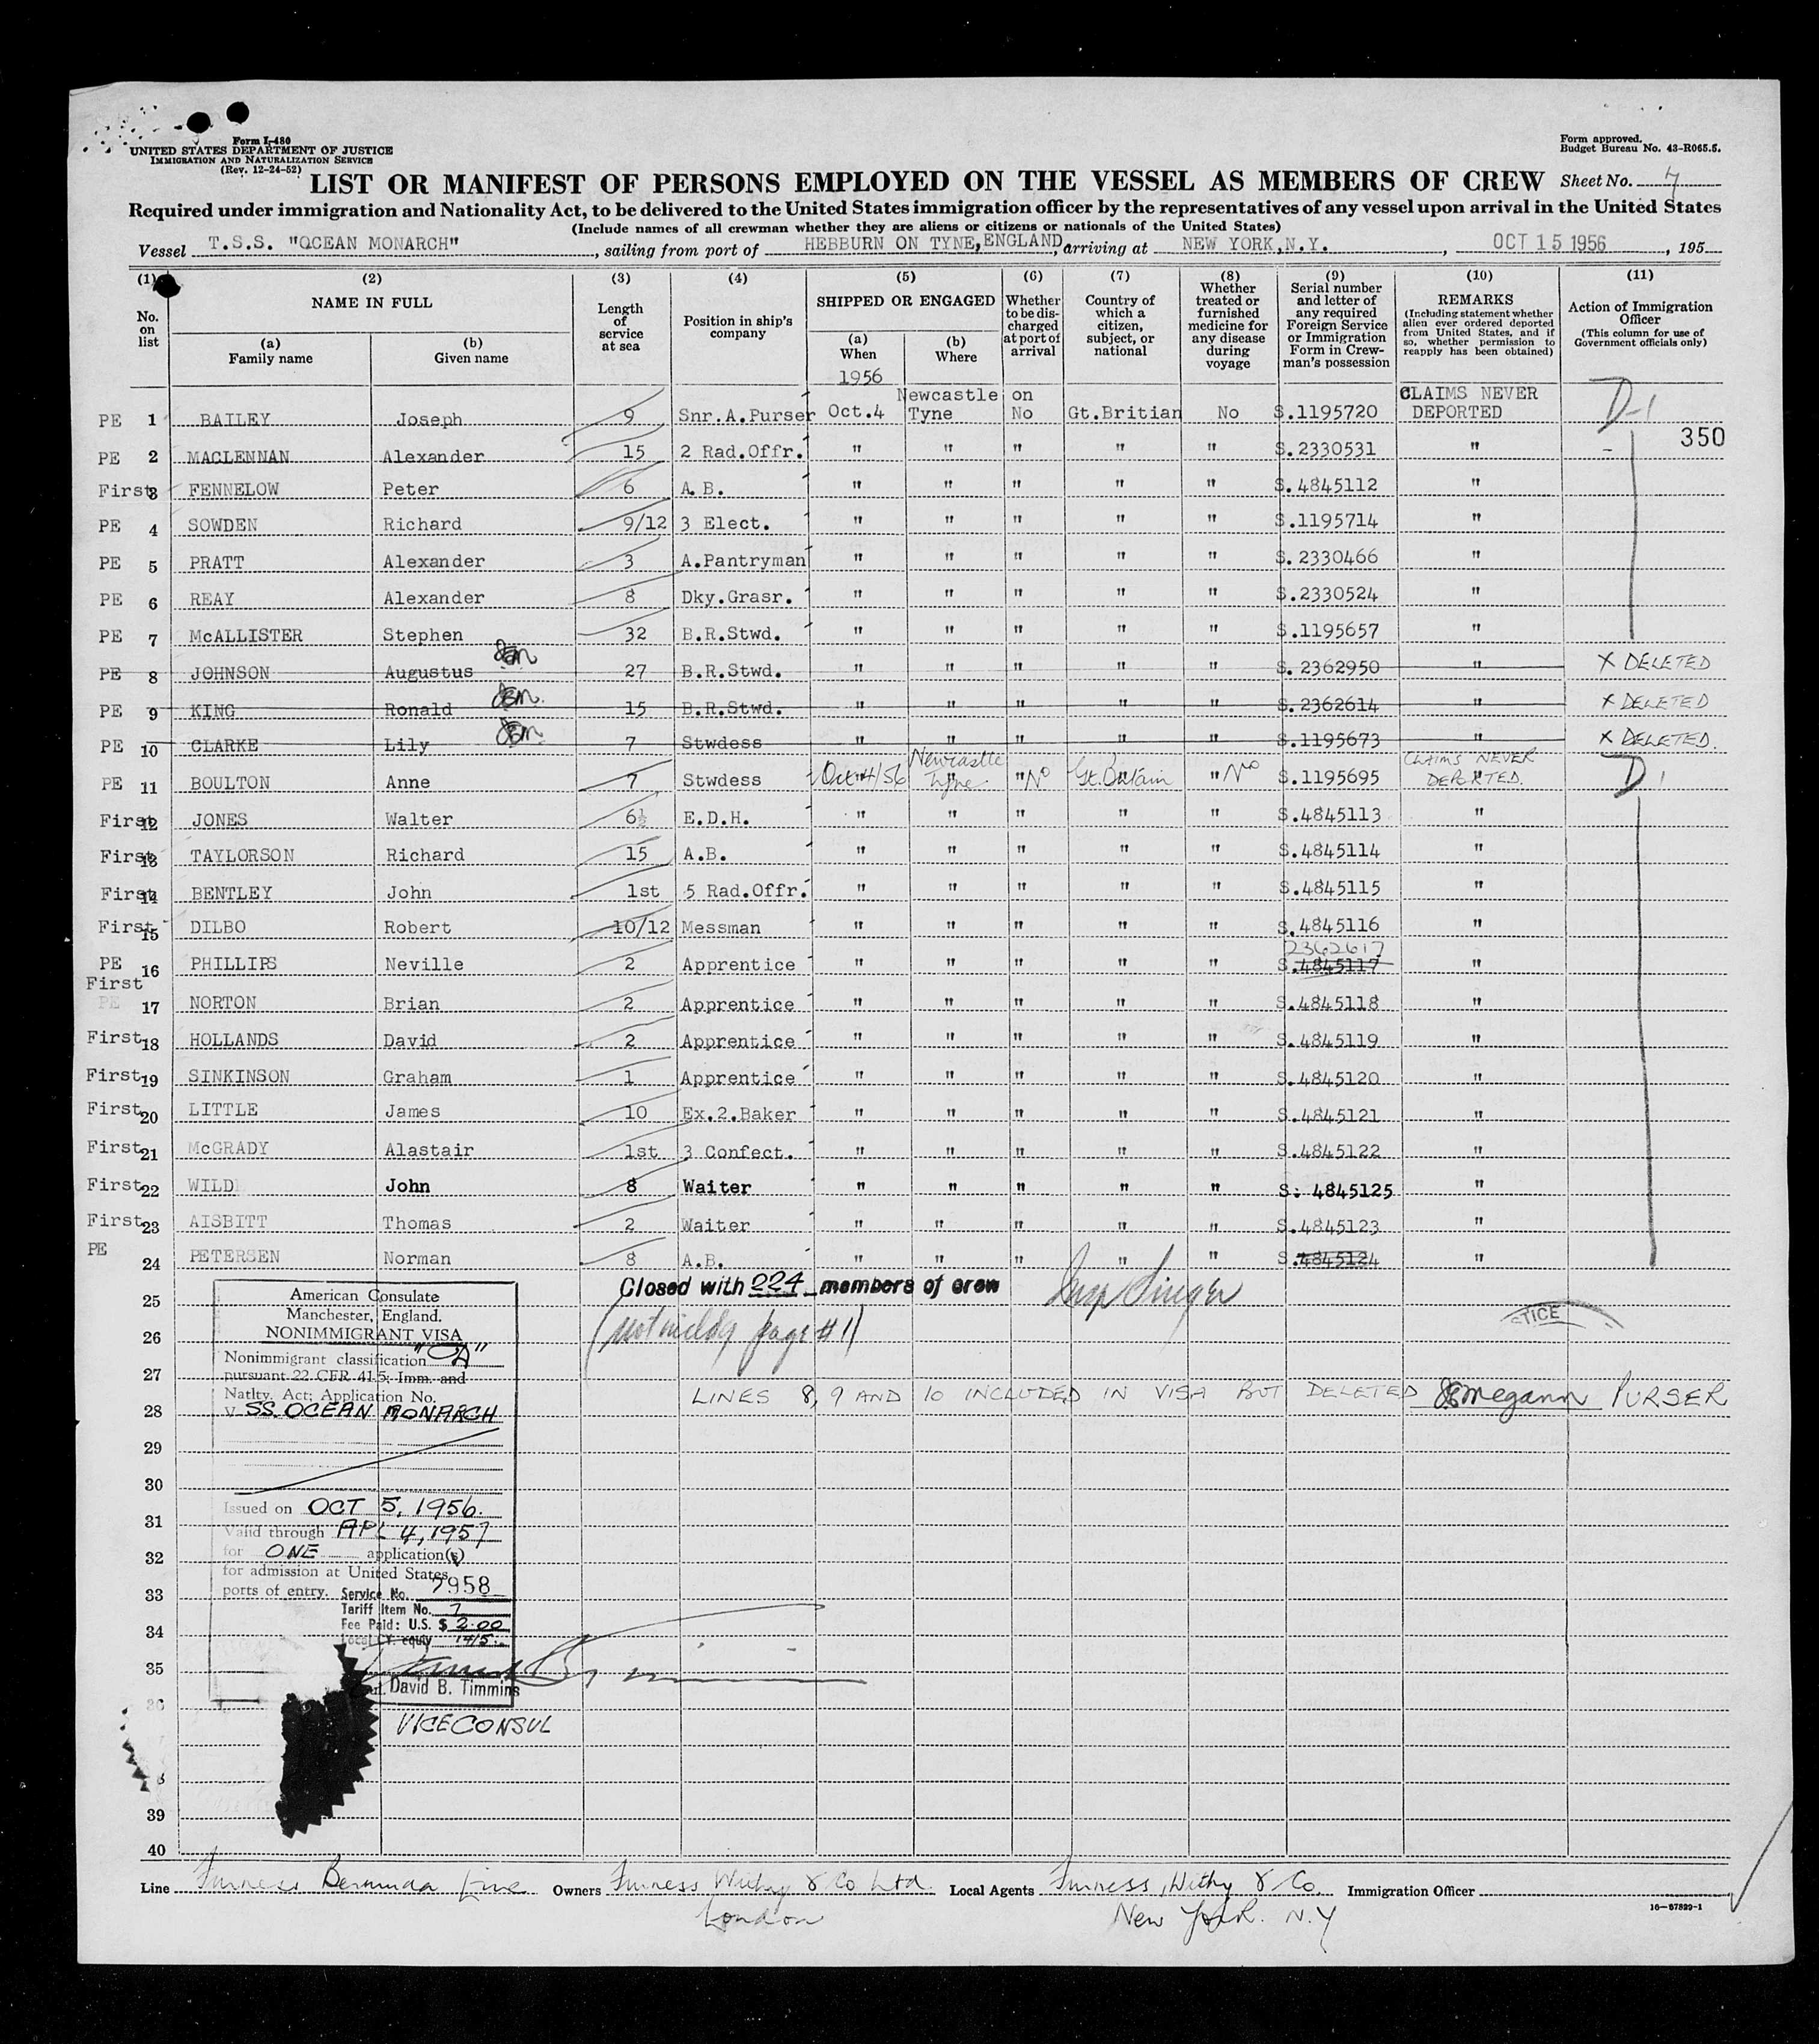 Form I-480
UNITED STATES DEPARTMENT OF JUSTICE
IMMIGRATION AND NATURALIZATION SERVICE
(Rev. 12-24-52)
Form approved.
Budget Bureau No. 43-R065.5.
LIST OR MANIFEST OF PERSONS EMPLOYED ON THE VESSEL AS MEMBERS OF CREW Sheet No. 7
Required under immigration and Nationality Act, to be delivered to the United States immigration officer by the representatives of any vessel upon arrival in the United States
(Include names of all crewman whether they are aliens or citizens or nationals of the United States)
Vessel T.S.S. "OCEAN MONARCH", sailing from port of HEBBURN ON TYNE, ENGLAND, arriving at NEW YORK, N.Y., OCT 15 1956, 195
(1) (2) (3) (4) (5) (6) (7) (8) (9) (10) (11)
No. on list
NAME IN FULL
(a) Family name
(b) Given name
Length of service at sea
Position in ship's company
SHIPPED OR ENGAGED
(a) When
(b) Where
1956
Whether to be discharged at port of arrival
Country of which a citizen, subject, or national
Whether treated or furnished medicine for any disease during voyage
Serial number and letter of any required Foreign Service or Immigration Form in Crewman's possession
REMARKS
(Including statement whether alien ever ordered deported from United States, and if so, whether permission to reapply has been obtained)
Action of Immigration Officer
(This column for use of Government officials only)
PE 1 BAILEY Joseph 9 Snr.A.Purser Oct.4 Newcastle on Tyne No Gt.Britian No S.1195720 CLAIMS NEVER DEPORTED D-1
350
PE 2 MACLENNAN Alexander 15 2 Rad.Offr. " " " " " S.2330531 "
First 3 FENNELOW Peter 6 A.B. " " " " " S.4845112 "
PE 4 SOWDEN Richard 9/12 3 Elect. " " " " " S.1195714 "
PE 5 PRATT Alexander 3 A.Pantryman " " " " " S.2330466 "
PE 6 REAY Alexander 8 Dky.Grasr. " " " " " S.2330524 "
PE 7 McALLISTER Stephen 32 B.R.Stwd. " " " " " S.1195657 "
PE 8 JOHNSON Augustus 27 B.R.Stwd. " " " " " S.2362950 " X DELETED
PE 9 KING Ronald 15 B.R.Stwd. " " " " " S.2362614 " X DELETED
PE 10 CLARKE Lily 7 Stwdess " " " " " S.1195673 " X DELETED.
PE 11 BOULTON Anne 7 Stwdess Oct 4/56 Newcastle Tyne " No Gt. Britain " No S.1195695 CLAIMS NEVER DEPORTED. D 1
First 12 JONES Walter 6½ E.D.H. " " " " " S.4845113 "
First 13 TAYLORSON Richard 15 A.B. " " " " " S.4845114 "
First 14 BENTLEY John 1st 5 Rad.Offr. " " " " " S.4845115 "
First 15 DILBO Robert 10/12 Messman " " " " " S.4845116 "
2362617
PE 16 PHILLIPS Neville 2 Apprentice " " " " " S.4845117 "
First
PE 17 NORTON Brian 2 Apprentice " " " " " S.4845118 "
First 18 HOLLANDS David 2 Apprentice " " " " " S.4845119 "
First 19 SINKINSON Graham 1 Apprentice " " " " " S.4845120 "
First 20 LITTLE James 10 Ex.2.Baker " " " " " S.4845121 "
First 21 McGRADY Alastair 1st 3 Confect. " " " " " S.4845122 "
First 22 WILD John 8 Waiter " " " " " S. 4845125 "
First 23 AISBITT Thomas 2 Waiter " " " " " S.4845123 "
PE 24 PETERSEN Norman 8 A.B. " " " " " S.4845124 "
25
26
27
28
29
30
31
32
33
34
35
36
39
40
Closed with 224 members of crew
page #1)
LINES 8, 9 AND 10 INCLUDED IN VISA BUT DELETED PURSER
TICE
American Consulate
Manchester, England.
NONIMMIGRANT VISA
Nonimmigrant classification "D"
pursuant 22 CFR 41.5; Imm. and
Natlty. Act; Application No.
V SS. OCEAN MONARCH
Issued on OCT 5, 1956.
Valid through APL 4, 1957
for ONE application(s)
for admission at United States
ports of entry. Service No. 7958
Tariff Item No. 7
Fee Paid: U.S. $ 2.00
Local CY. equiv 14/5
David B. Timmins
VICE CONSUL
Line Furness Bermuda Line Owners Furness Withy & Co Ltd. London Local Agents Furness, Withy & Co. New York. N.Y Immigration Officer
16-67829-1